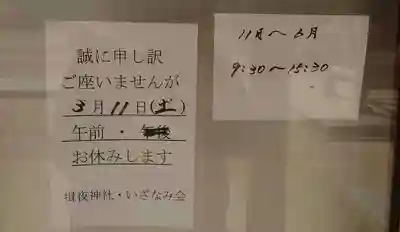 誠に申し訳
ご座いませんが
3月11日(土)
午前・午後
お休みします
揖夜神社・いざなみ会
11月〜3月
9:30〜15:30